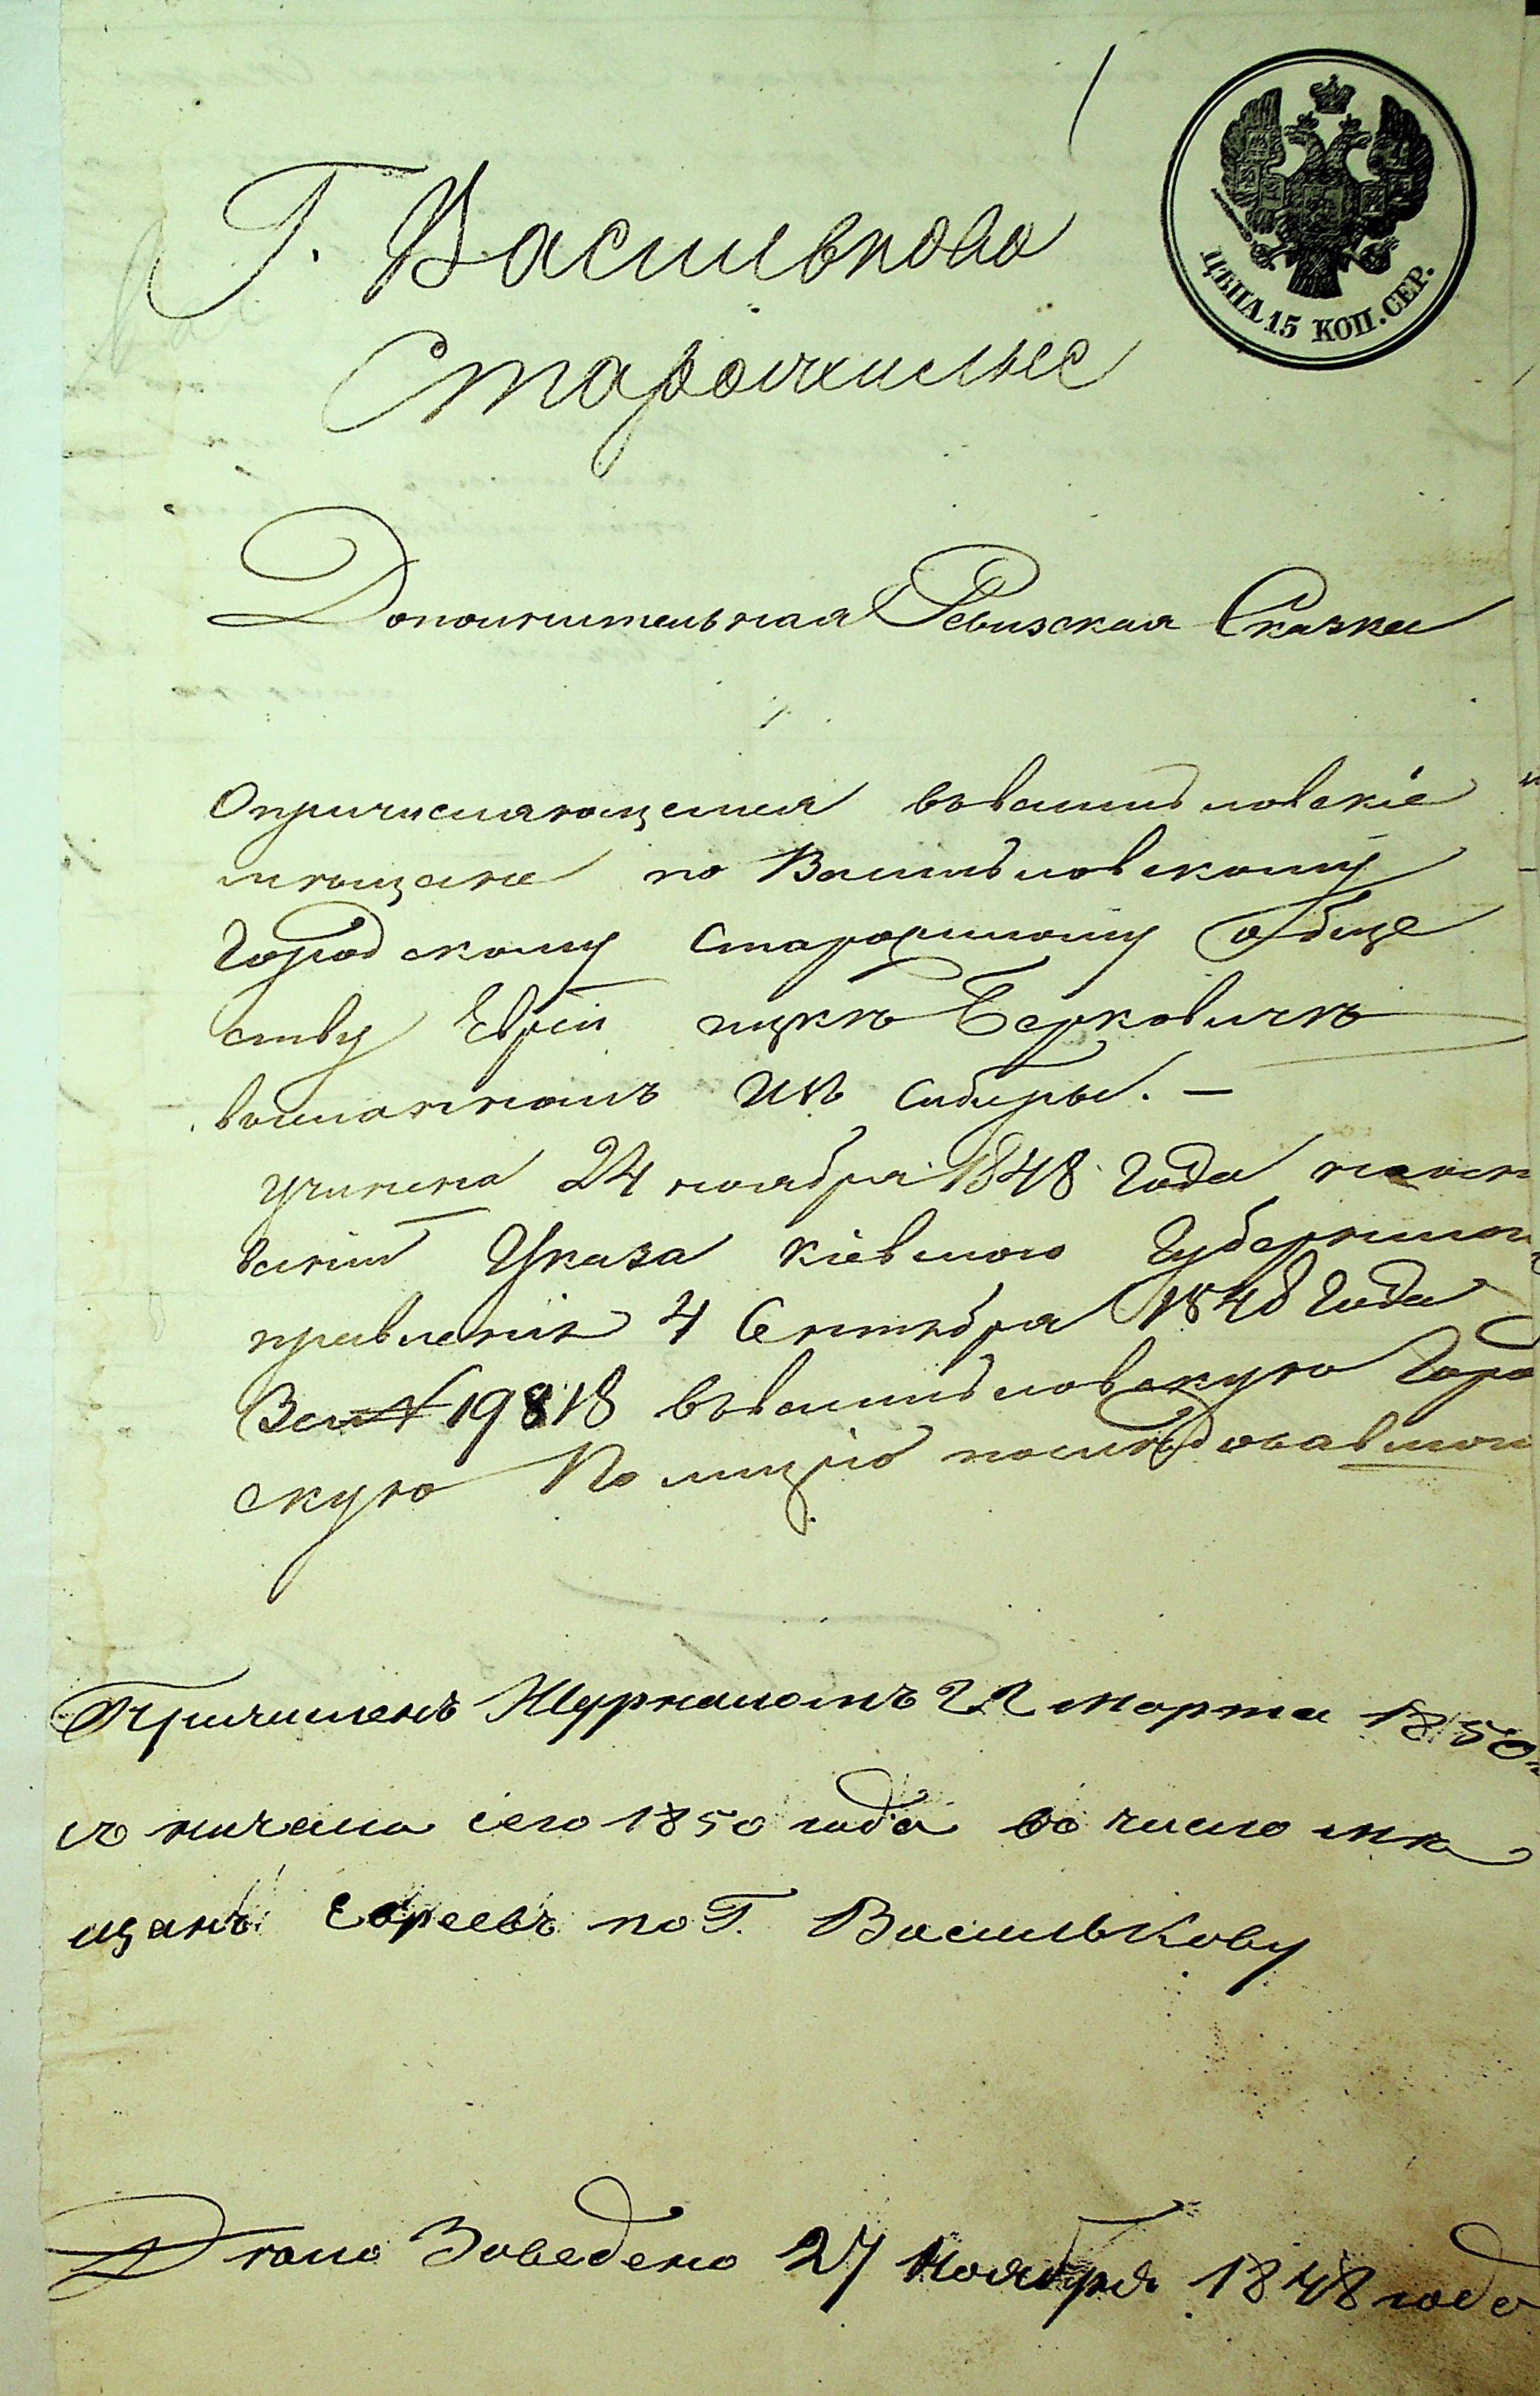 ЦѢНА 15 КОП. СЕР.
Г. Василькова
Старожилые
Дополнительная Ревизская Сказка
О причисляющемся въ васильковскіе
мѣщане по Васильковскому
Городскому Старожилому Обще
ству Еврей ицкѣ Берковичѣ
высланномъ изъ Сибири. –
Учинена 24 ноября 1848 Года на осн
ваніи Указа Кіевского Губернског
правленія 4 Сентября 1848 Года
За № 19818 въ васильковскую Горо
скую Полицію послѣдовавшог
Причисленъ Журналомъ 22 Марта 1850
съ начала сего 1850 года во число мѣ
щанъ Евреевъ по Г. Василькову
Дѣло Заведено 27 Ноября 1848 года